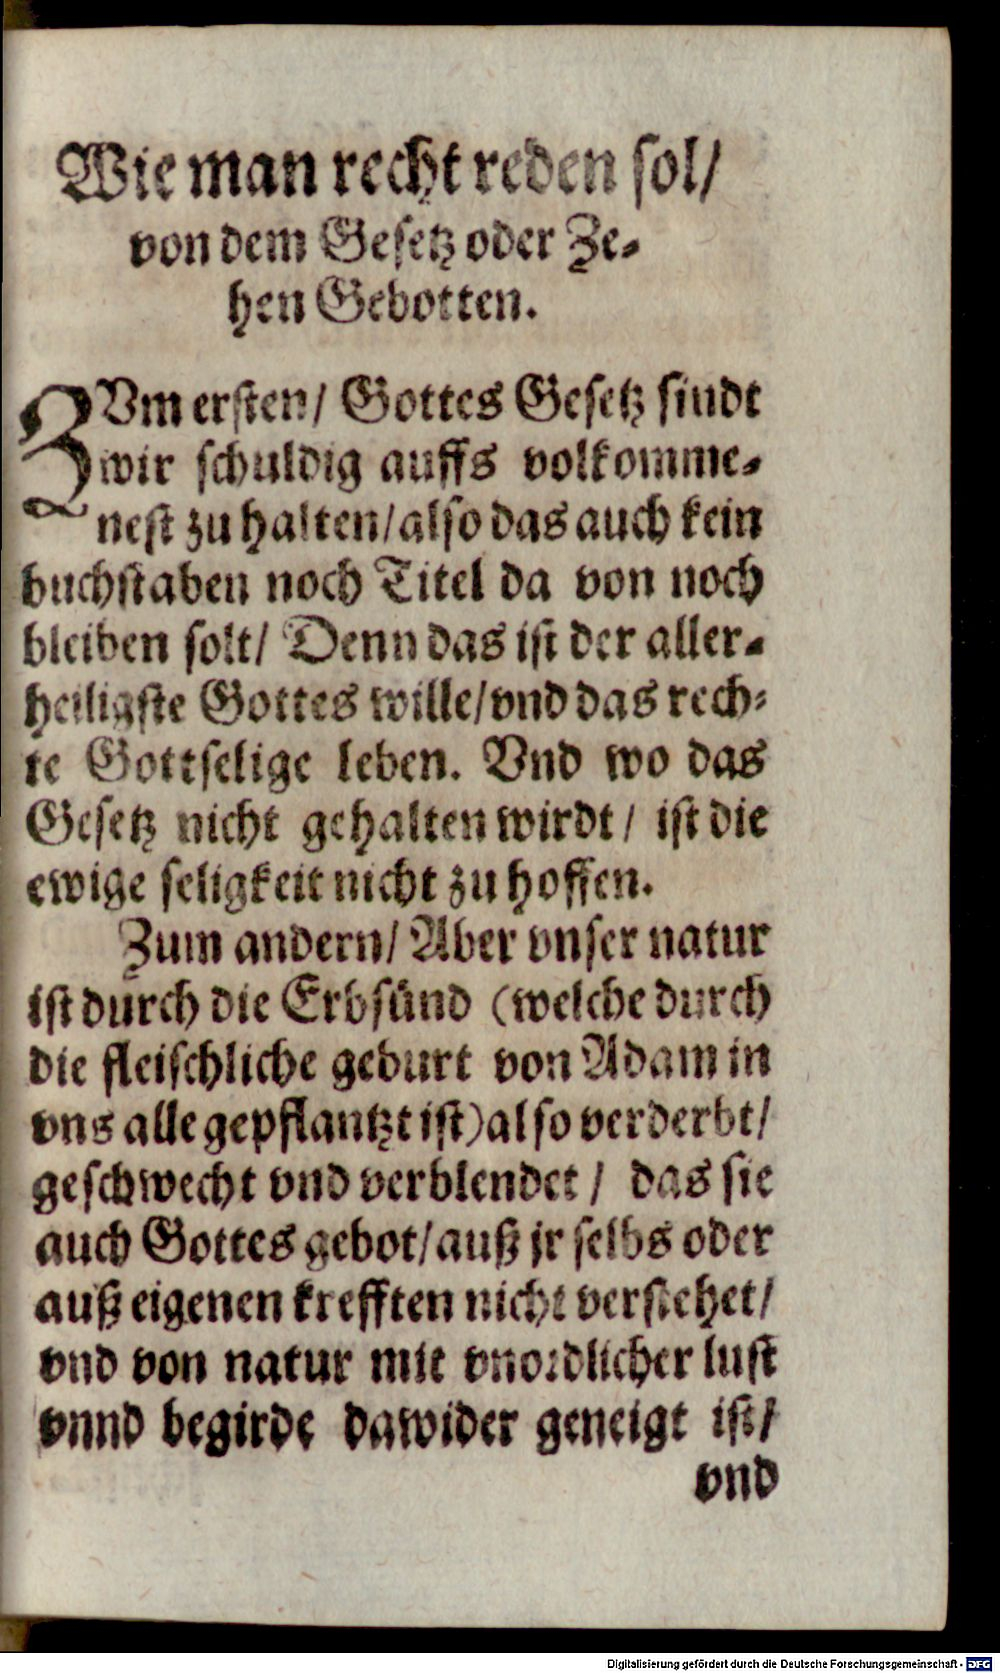 Wie man recht reden sol/
von dem Gesetz oder Ze-
hen Gebotten.
ZVm ersten/ Gottes Gesetz sindt
wir schuldig auffs volkomme-
nest zu halten/ also das auch kein
buchstaben noch Titel da von noch
bleiben solt/ Denn das ist der aller-
heiligste Gottes wille/ vnd das rech-
te Gottselige leben. Vnd wo das
Gesetz nicht gehalten wirdt/ ist die
ewige seligkeit nicht zu hoffen.
Zum andern/ Aber vnser natur
ist durch die Erbsünd (welche durch
die fleischliche geburt von Adam in
vns alle gepflantzt ist) also verderbt/
geschwecht vnd verblendet/ das sie
auch Gottes gebot/ auß jr selbs oder
auß eigenen krefften nicht verstehet/
vnd von natur mit vnordlicher lust
vnnd begirde dawider geneigt ist/
vnd
Digitalisierung gefördert durch die Deutsche Forschungsgemeinschaft - DFG